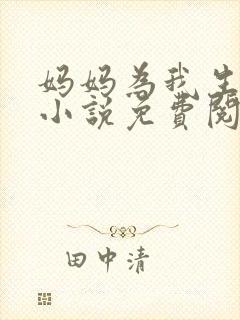 妈妈为我生
小説免費閱
田中清